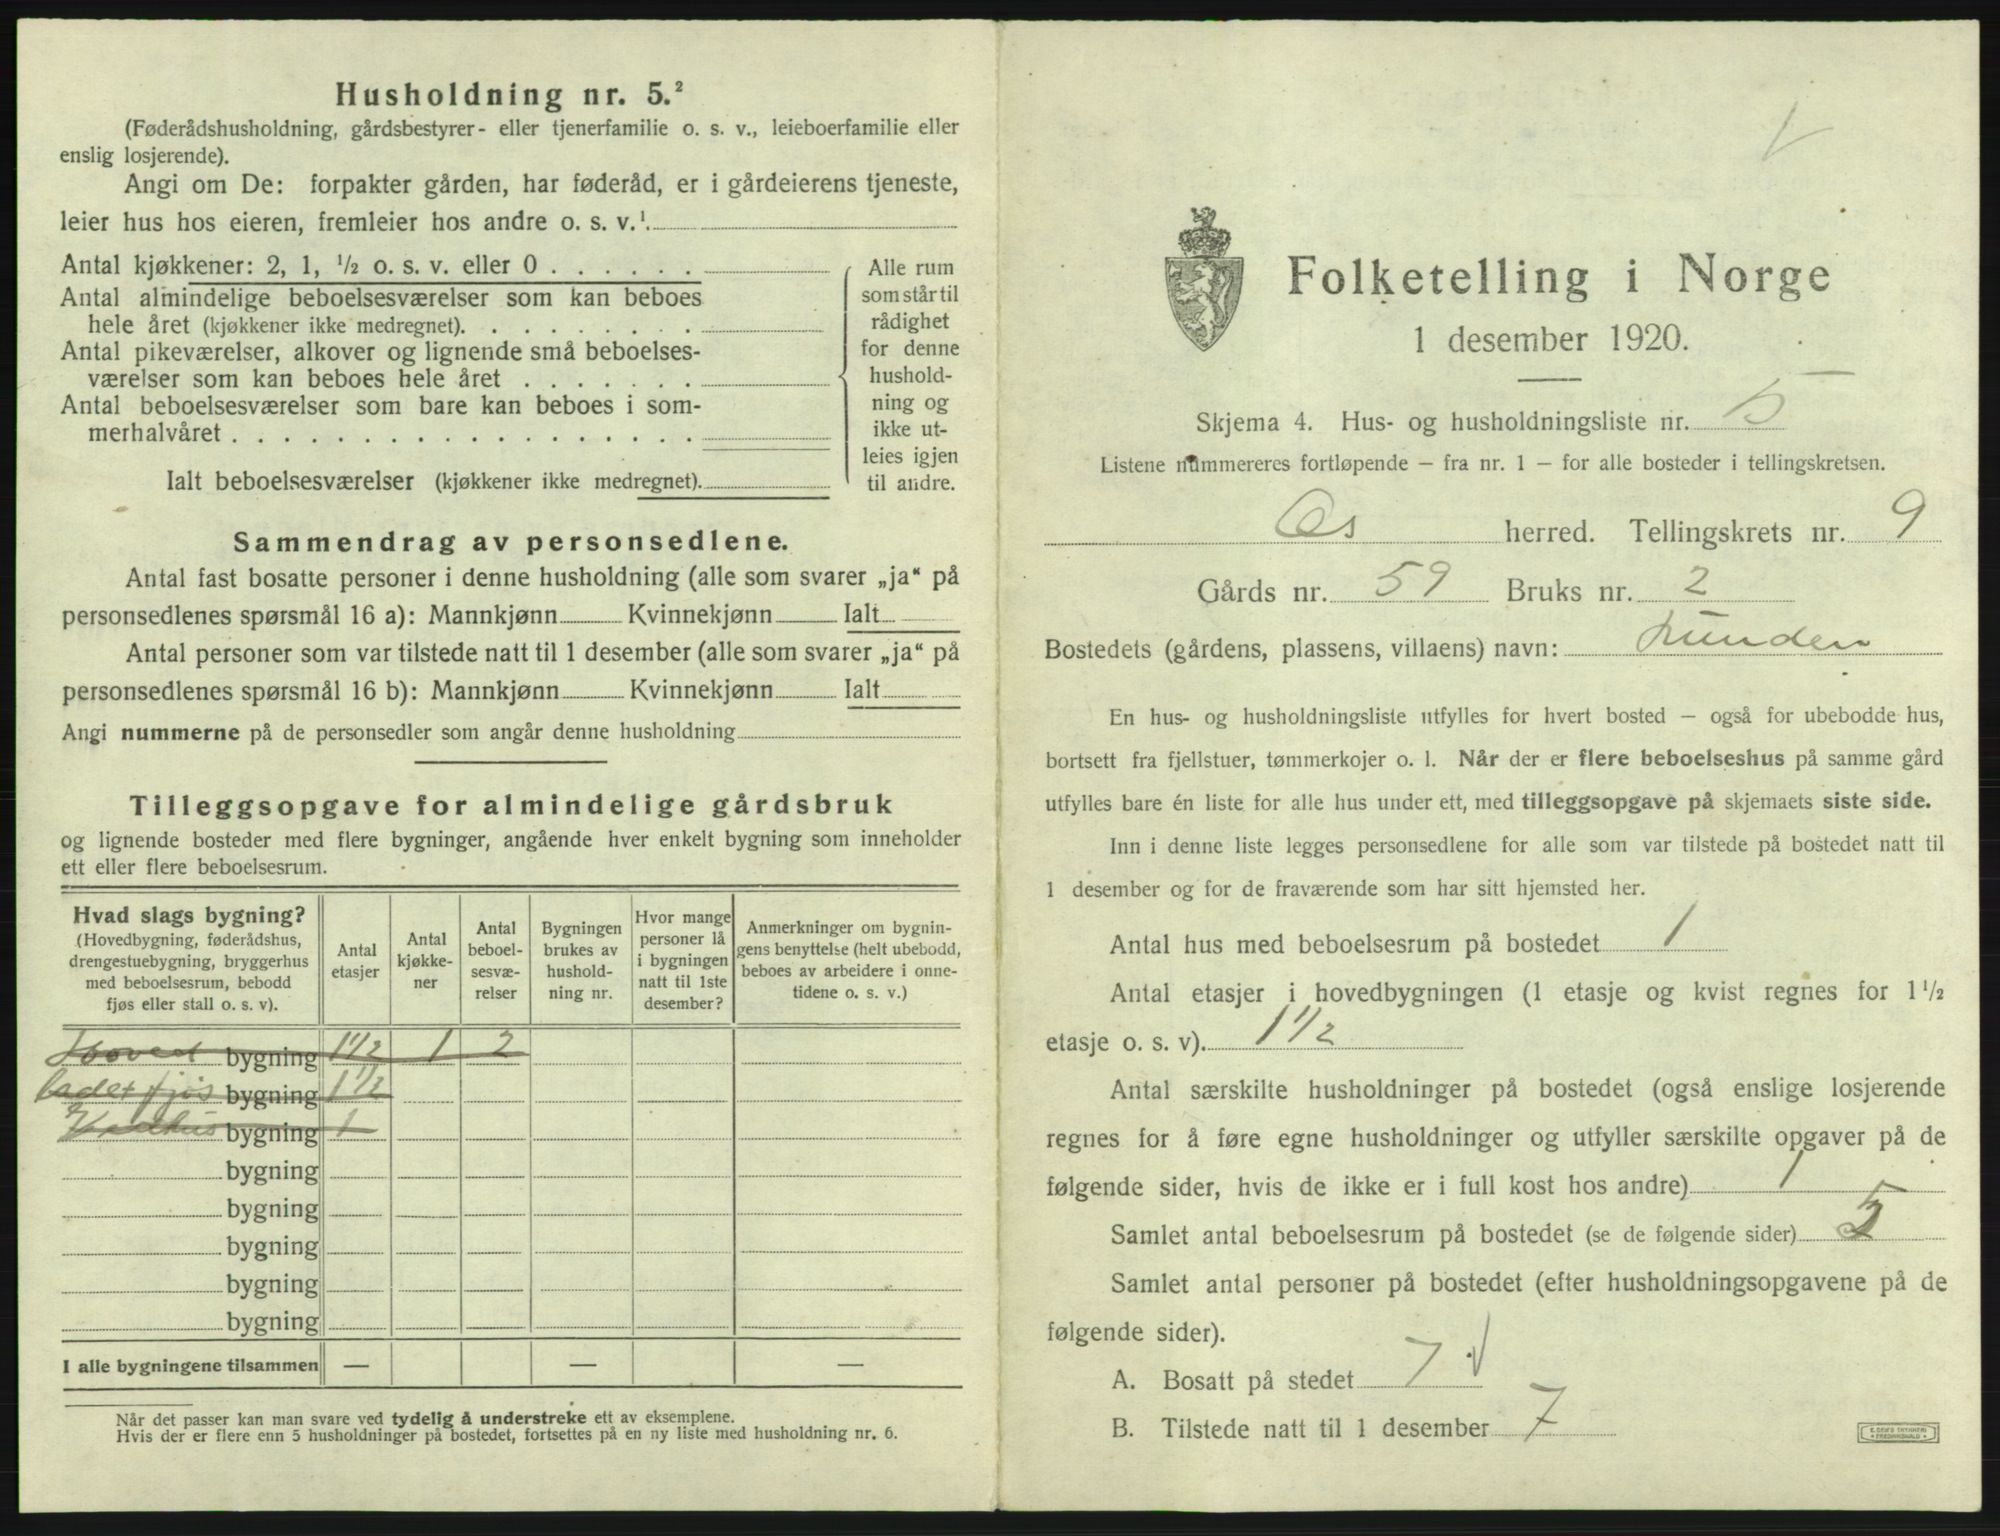 Husholdning nr. 5.²
(Føderådshusholdning, gårdsbestyrer- eller tjenerfamilie o. s. v., leieboerfamilie eller
enslig losjerende).
Angi om De: forpakter gården, har føderåd, er i gårdeierens tjeneste,
leier hus hos eieren, fremleier hos andre o. s. v.¹.
Antal kjøkkener: 2, 1, ½ o. s. v. eller 0 . . . . . .
Antal almindelige beboelsesværelser som kan beboes
hele året (kjøkkener ikke medregnet). . . . . . . . .
Antal pikeværelser, alkover og lignende små beboelses-
værelser som kan beboes hele året . . . . . . .
Antal beboelsesværelser som bare kan beboes i som-
merhalvåret . . . . . . . . . . . . . . . . . .
Ialt beboelsesværelser (kjøkkener ikke medregnet).
Alle rum
som står til
rådighet
for denne
hushold-
ning og
ikke ut-
leies igjen
til andre.
Sammendrag av personsedlene.
Antal fast bosatte personer i denne husholdning (alle som svarer „ja“ på
personsedlenes spørsmål 16 a): Mannkjønn Kvinnekjønn Ialt
Antal personer som var tilstede natt til 1 desember (alle som svarer „ja“ på
personsedlenes spørsmål 16 b): Mannkjønn Kvinnekjønn Ialt
Angi nummerne på de personsedler som angår denne husholdning
Tilleggsopgave for almindelige gårdsbruk
og lignende bosteder med flere bygninger, angående hver enkelt bygning som inneholder
ett eller flere beboelsesrum.
Hvad slags bygning?
(Hovedbygning, føderådshus,
drengestuebygning, bryggerhus
med beboelsesrum, bebodd
fjøs eller stall o. s. v).
Antal
etasjer
Antal
kjøkke-
ner
Antal
beboel-
sesvæ-
relser
Bygningen
brukes av
hushold-
ning nr.
Hvor mange
personer lå
i bygningen
natt til 1ste
desember?
Anmerkninger om bygnin-
gens benyttelse (helt ubebodd,
beboes av arbeidere i onne-
tidene o. s. v.)
Hoved bygning 1 1/2 1 2
fjøs bygning 1 1/2
Vedhus bygning 1
bygning
bygning
bygning
bygning
bygning
I alle bygningene tilsammen — — —
Når det passer kan man svare ved tydelig å understreke ett av eksemplene.
Hvis der er flere enn 5 husholdninger på bostedet, fortsettes på en ny liste med husholdning nr. 6.
Folketelling i Norge
1 desember 1920.
Skjema 4. Hus- og husholdningsliste nr. 5
Listene nummereres fortløpende – fra nr. 1 – for alle bosteder i tellingskretsen.
Os herred. Tellingskrets nr. 9
Gårds nr. 59 Bruks nr. 2
Bostedets (gårdens, plassens, villaens) navn: Lunden
En hus- og husholdningsliste utfylles for hvert bosted – også for ubebodde hus,
bortsett fra fjellstuer, tømmerkojer o. l. Når der er flere beboelseshus på samme gård
utfylles bare én liste for alle hus under ett, med tilleggsopgave på skjemaets siste side.
Inn i denne liste legges personsedlene for alle som var tilstede på bostedet natt til
1 desember og for de fraværende som har sitt hjemsted her.
Antal hus med beboelsesrum på bostedet 1
Antal etasjer i hovedbygningen (1 etasje og kvist regnes for 1½
etasje o. s. v). 1 1/2
Antal særskilte husholdninger på bostedet (også enslige losjerende
regnes for å føre egne husholdninger og utfyller særskilte opgaver på de
følgende sider, hvis de ikke er i full kost hos andre) 1
Samlet antal beboelsesrum på bostedet (se de følgende sider)
Samlet antal personer på bostedet (efter husholdningsopgavene på de
følgende sider).
A. Bosatt på stedet 7 √
B. Tilstede natt til 1 desember 7